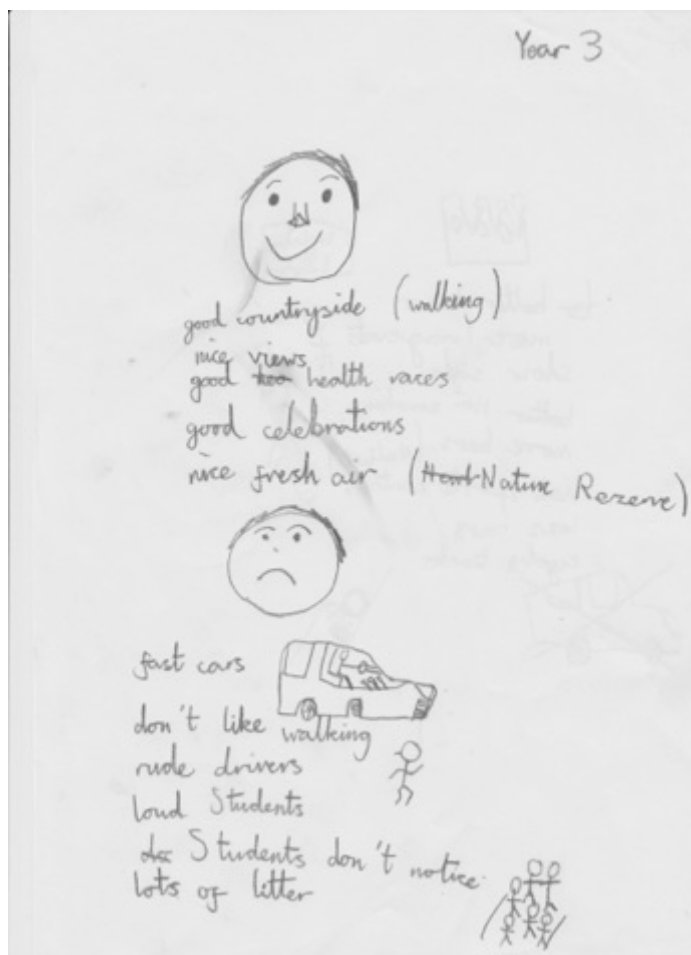 Year 3
good countryside (walking)
nice views
good health races
good celebrations
nice fresh air (Nature Rezerve)
fast cars
don't like walking
rude drivers
loud Students
Students don't notice
lots of litter